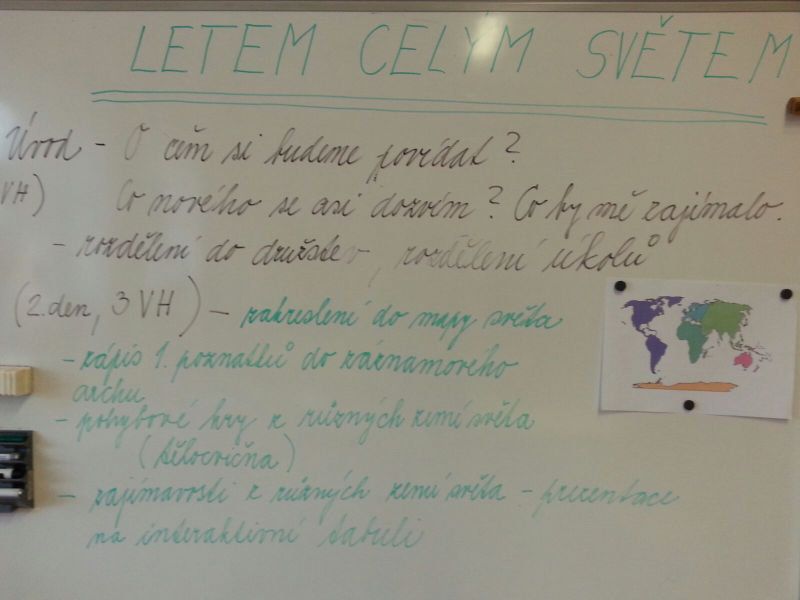 LETEM CELÝM SVĚTEM
Úvod - O čem si budeme povídat?
VH) Co nového se asi dozvím? Co by mě zajímalo.
- rozdělení do družstev, rozdělení úkolů
(2. den, 3 VH) - zakreslení do mapy světa
- zápis 1. poznatků do záznamového
archu
- pohybové hry z různých zemí světa
(tělocvična)
- zajímavosti z různých zemí světa - prezentace
na interaktivní tabuli